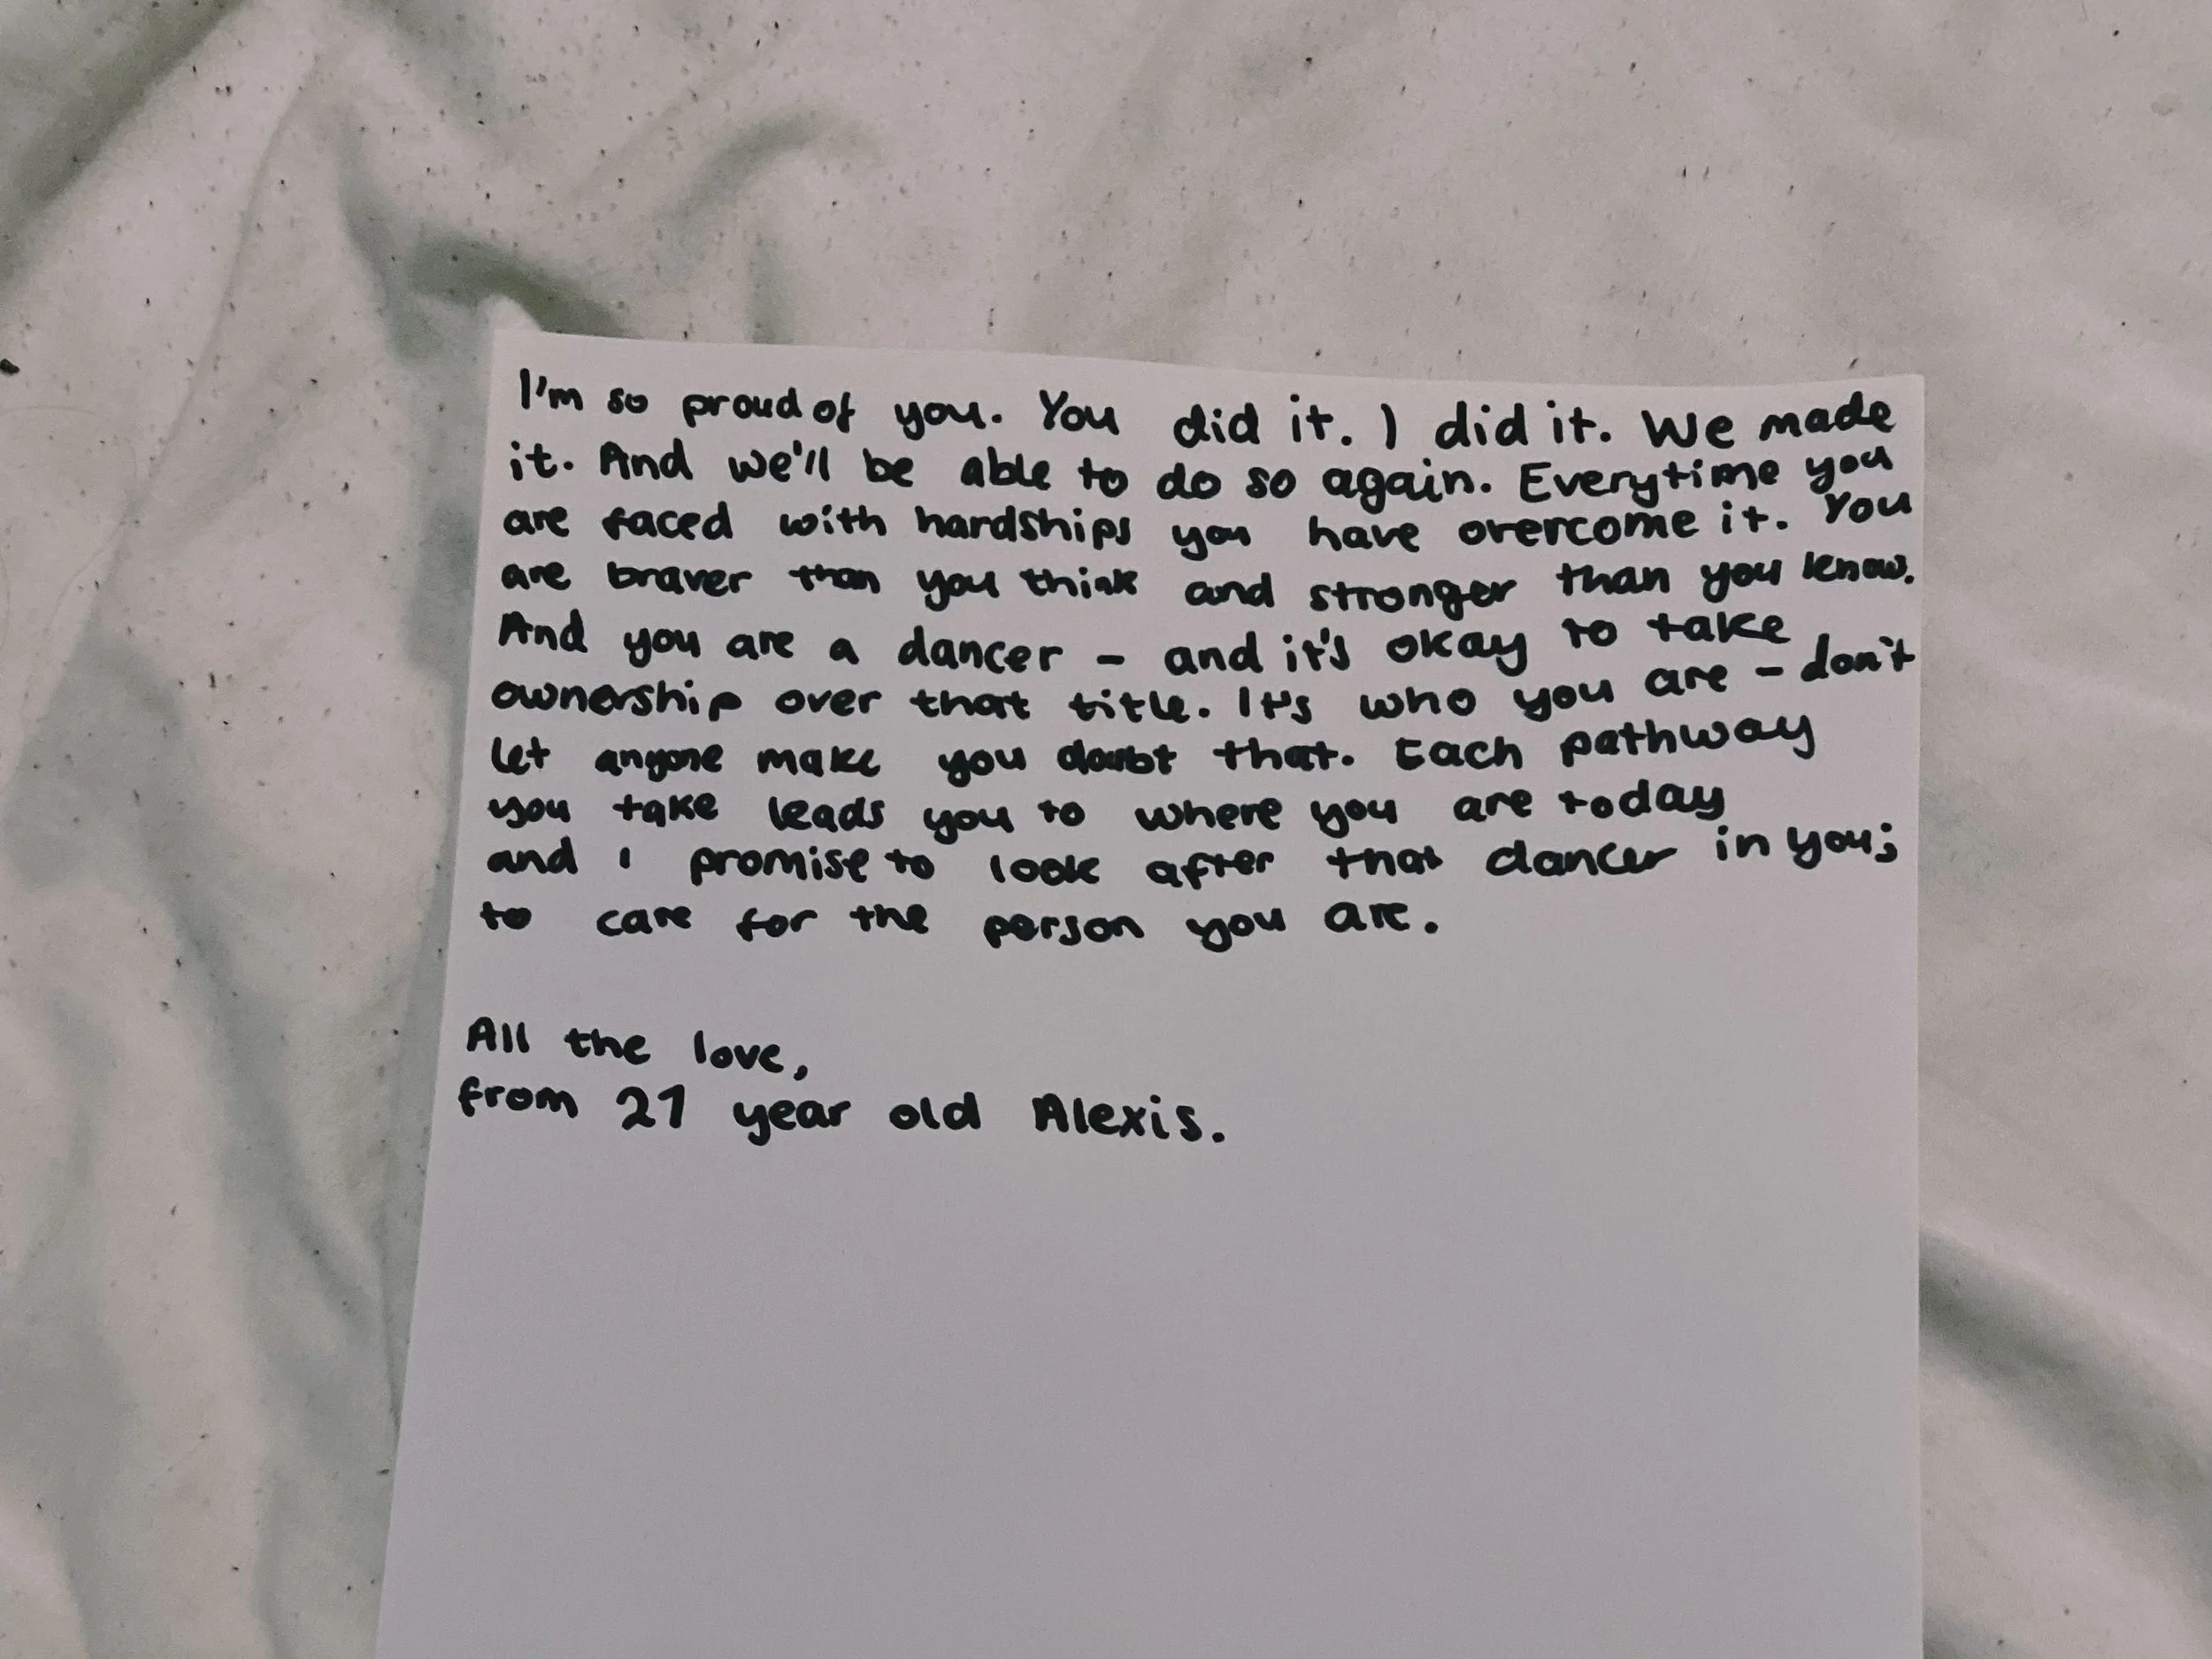 I'm so proud of you. You did it. I did it. We made
it. And we'll be able to do so again. Everytime you
are faced with hardships you have overcome it. You
are braver than you think and stronger than you know.
And you are a dancer - and it's okay to take
ownership over that title. It's who you are - don't
let anyone make you doubt that. Each pathway
you take leads you to where you are today
and I promise to look after that dancer in you;
to care for the person you are.
All the love,
from 21 year old Alexis.